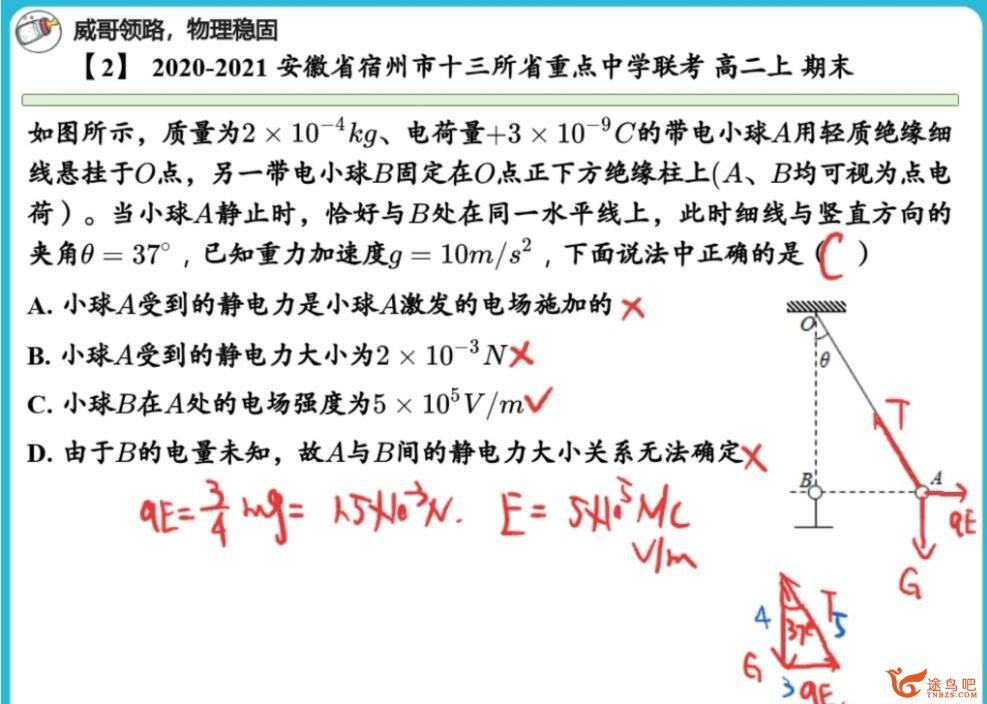 威哥领路，物理稳固
【2】 2020-2021 安徽省宿州市十三所省重点中学联考 高二上 期末
如图所示，质量为2 × 10⁻⁴kg、电荷量+3 × 10⁻⁹C的带电小球A用轻质绝缘细
线悬挂于O点，另一带电小球B固定在O点正下方绝缘柱上(A、B均可视为点电
荷）。当小球A静止时，恰好与B处在同一水平线上，此时细线与竖直方向的
夹角θ = 37°，已知重力加速度g = 10m/s²，下面说法中正确的是（C）
A. 小球A受到的静电力是小球A激发的电场施加的 ×
B. 小球A受到的静电力大小为2 × 10⁻³N ×
C. 小球B在A处的电场强度为5 × 10⁵V/m ✓
D. 由于B的电量未知，故A与B间的静电力大小关系无法确定 ×
O
θ
T
B
A
qE
G
qE = 3/4 mg = 1.5×10⁻³N. E = 5×10⁵ N/C
V/m
4
37°
T
5
G
3
qE
途鸟吧
TNBZS.COM